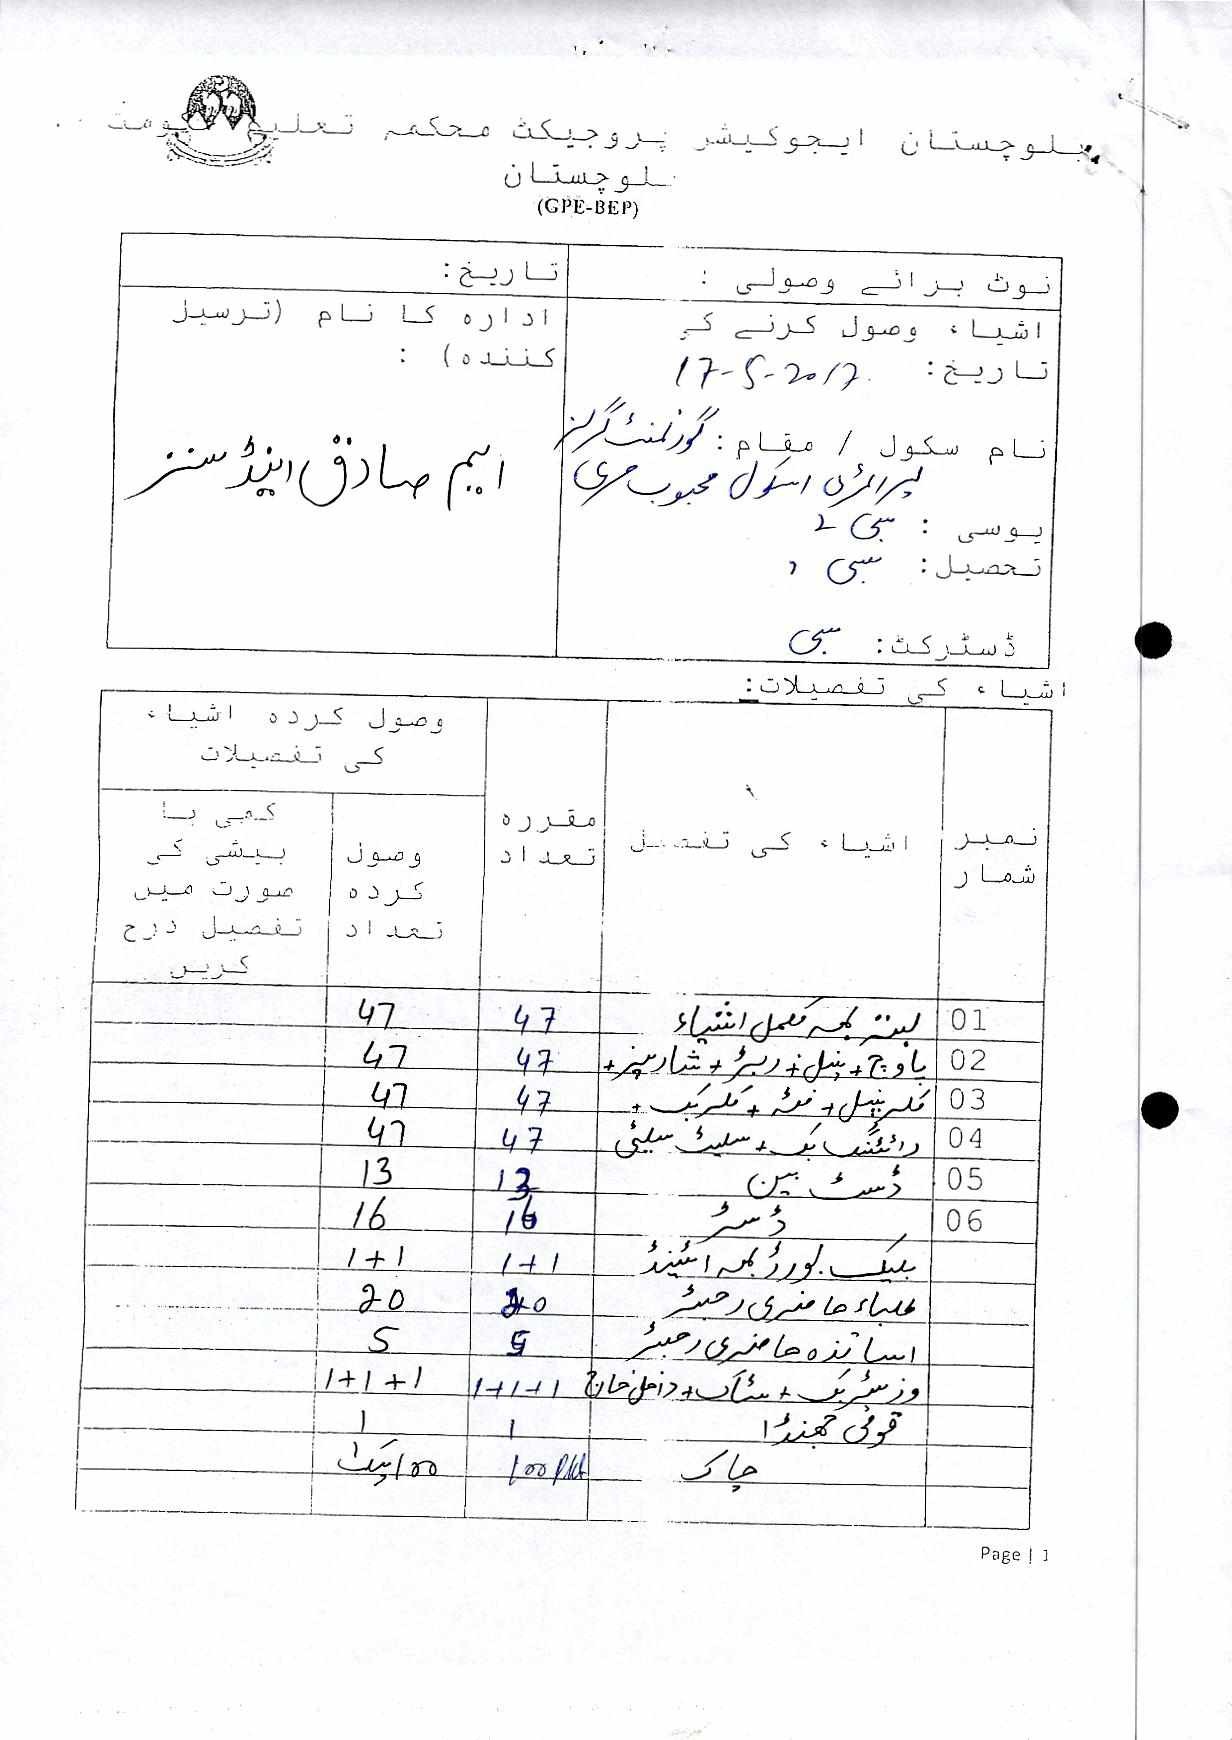 بلوچستان ایجوکیشن پروجیکٹ محکمہ تعلیم حکومت
بلوچستان
(GPE-BEP)
نوٹ برائے وصولی :
تاریخ:
اشیاء وصول کرنے کی
تاریخ: 17-5-2017
نام سکول / مقام: گورنمنٹ گرلز
پرائمری اسکول محبوب مری
یوسی : سبی 2
تحصیل: سبی
ڈسٹرکٹ: سبی
ادارہ کا نام (ترسیل
کنندہ) :
ایم صادق اینڈ سنز
اشیاء کی تفصیلات:
نمبر شمار
اشیاء کی تفصیل
مقررہ تعداد
وصول کردہ اشیاء کی تفصیلات
وصول کردہ تعداد
کمی یا بیشی کی صورت میں تفصیل درج کریں
01 بستہ بمعہ مکمل اشیاء 47 47
02 پاوچ + پنسل + ربڑ + شارپنر + 47 47
03 کلر پنسل + فٹہ + کلر بک + 47 47
04 رائٹنگ بک + سلیٹ سلیٹی 47 47
05 ڈسٹ بین 13 13
06 ڈسٹر 16 16
بلیک بورڈ بمعہ اسٹینڈ 1+1 1+1
طلباء حاضری رجسٹر 20 20
اساتذہ حاضری رجسٹر 5 5
وزیٹر بک + سٹاک + داخل خارج 1+1+1 1+1+1
قومی جھنڈا 1 1
چاک 100 Pkt 100 پیکٹ
Page | 1